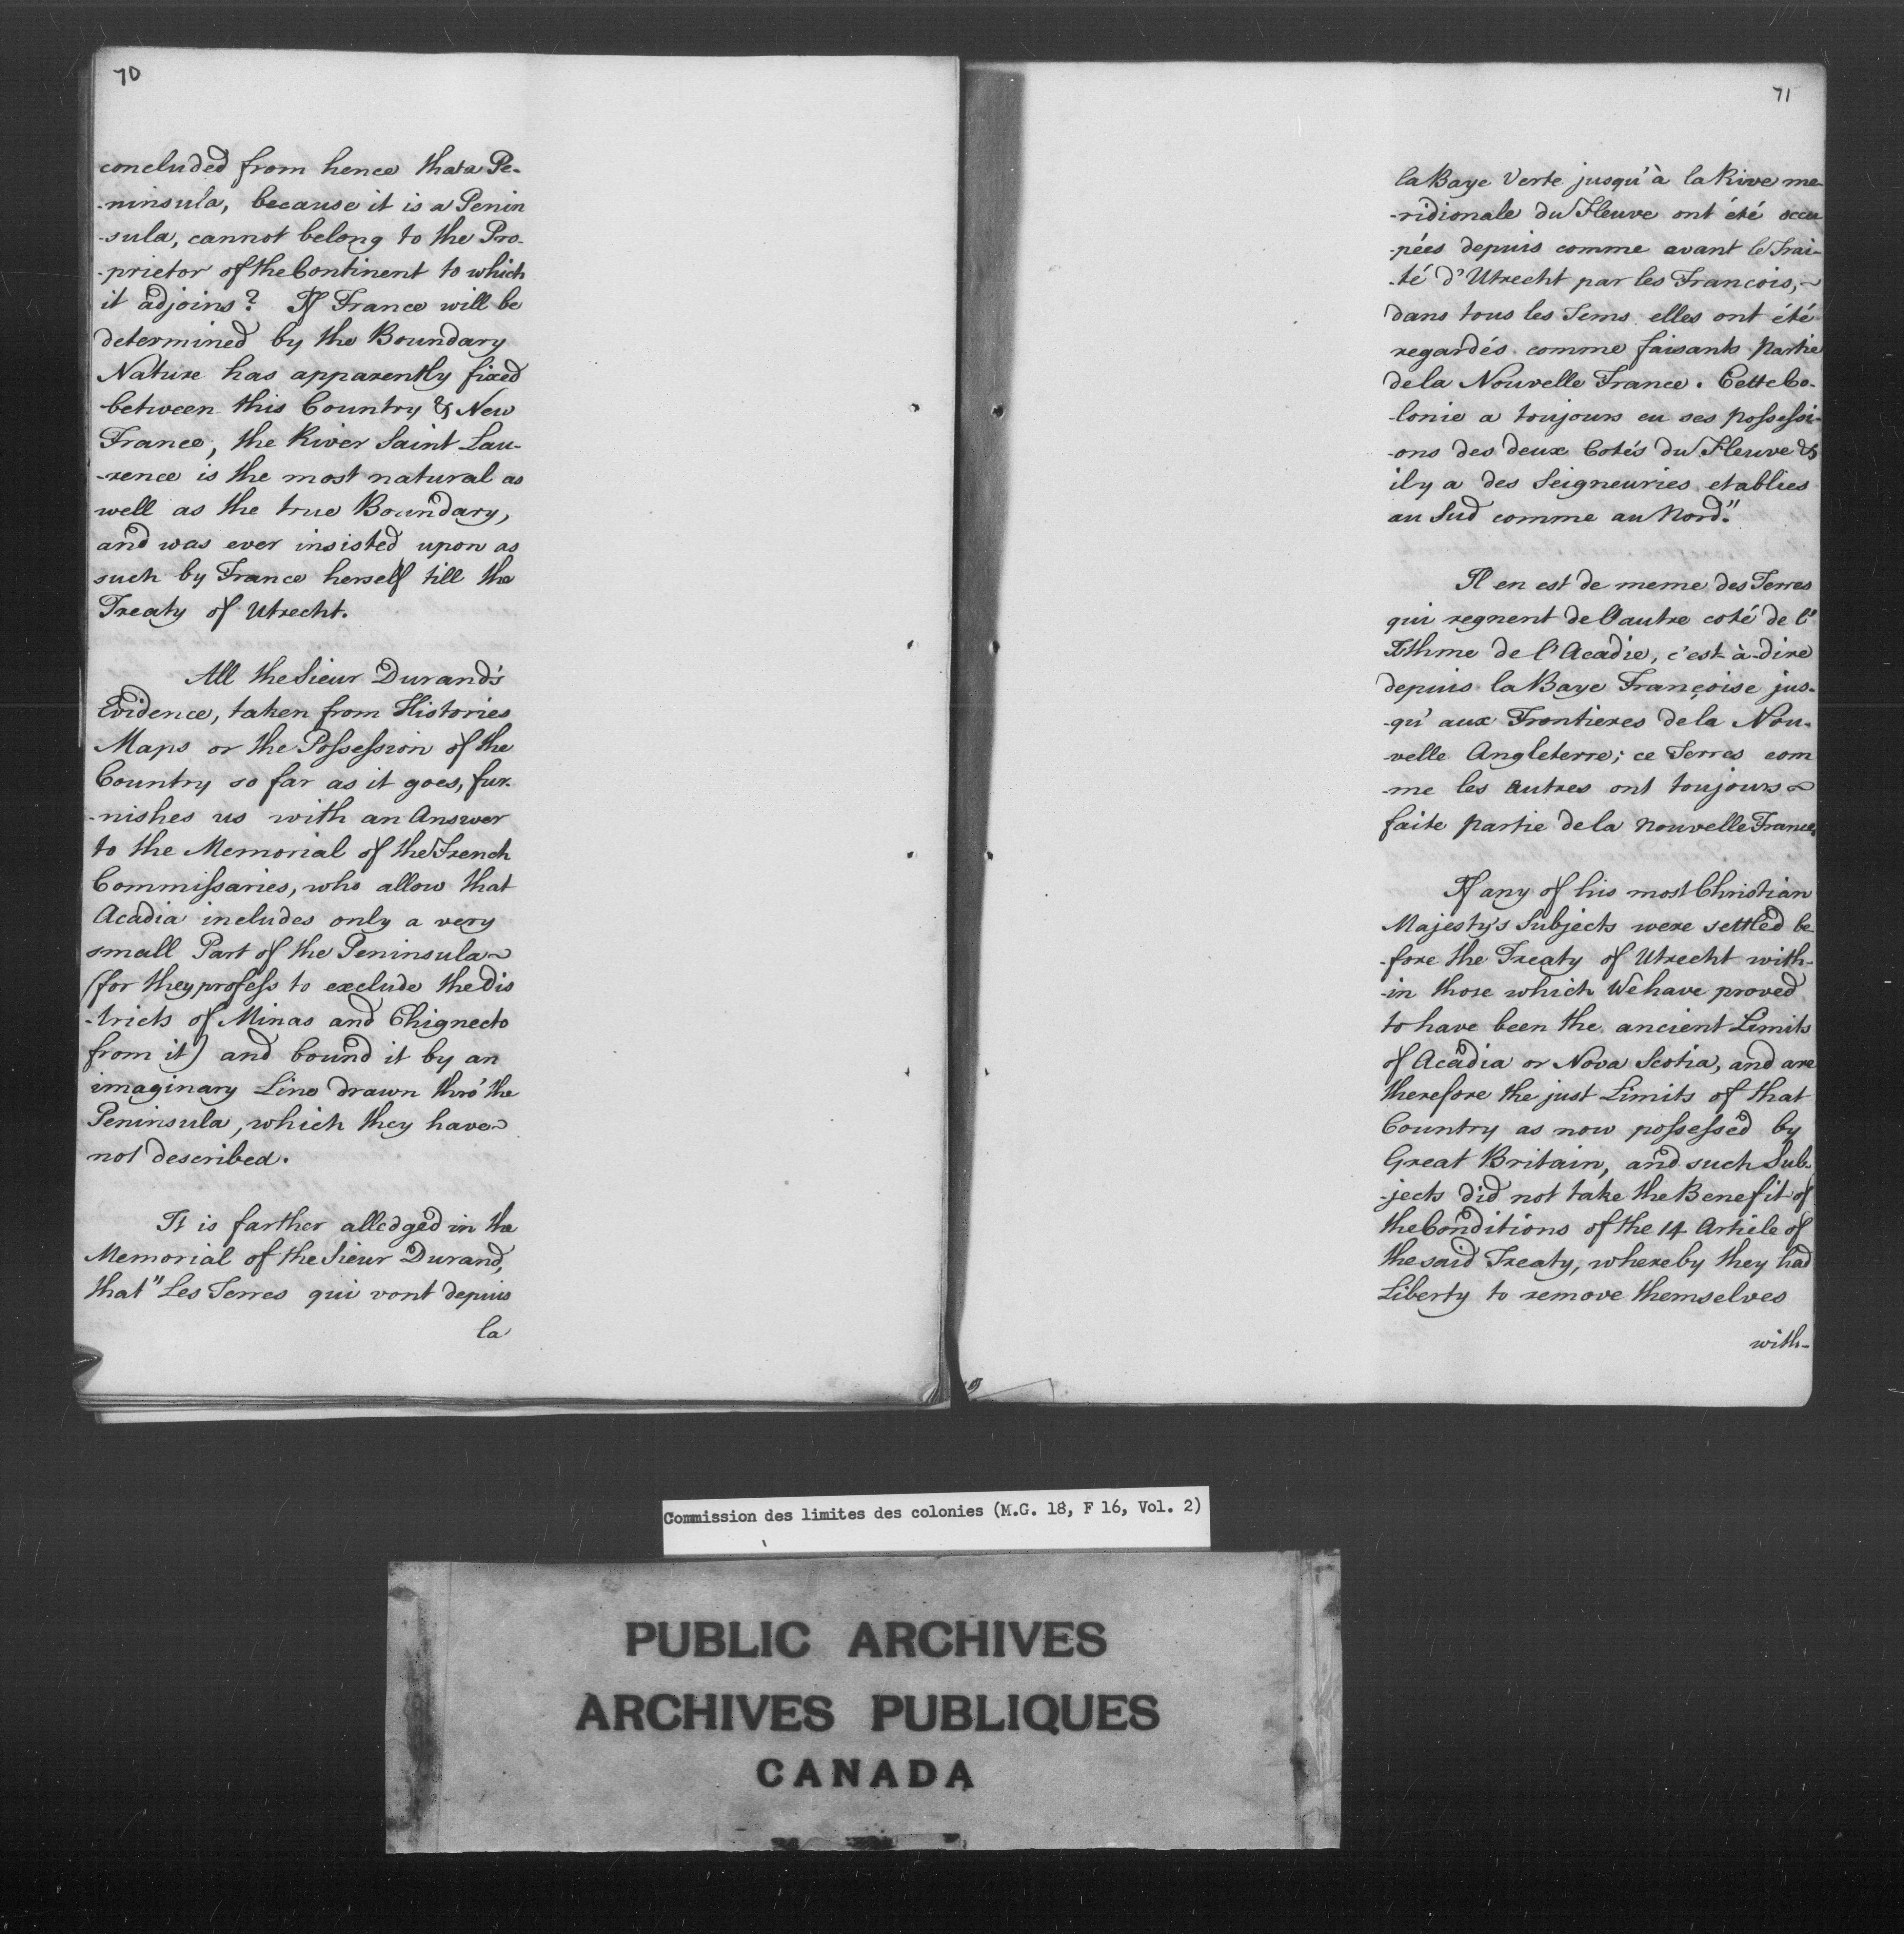 70
concluded from hence that a Pe-
-ninsula, because it is a Penin
-sula, cannot belong to the Pro-
-prietor of the Continent to which
it adjoins? If France will be
determined by the Boundary
Nature has apparently fixed
between this Country & New
France, the River Saint Lau-
-rence is the most natural as
well as the true Boundary,
and was ever insisted upon as
such by France herself till the
Treaty of Utrecht.
All the Sieur Durand's
Evidence, taken from Histories
Maps or the Possession of the
Country so far as it goes, fur-
-nishes us with an Answer
to the Memorial of the French
Commissaries, who allow that
Acadia includes only a very
small Part of the Peninsula
(for they profess to exclude the Dis
-tricts of Minas and Chignecto
from it) and bound it by an
imaginary Line drawn thro' the
Peninsula, which they have
not described.
It is farther alledged in the
Memorial of the Sieur Durand,
that "Les Terres qui vont depuis
la
71
la Baye Verte jusqu'à la Rive me-
-ridionale du Fleuve ont été occu
-pées depuis comme avant le Trai-
-té d'Utrecht par les Francois,
dans tous les Tems elles ont été
regardés comme faisants Partie
de la Nouvelle France. Cette Co-
-lonie a toujours eu ses Possessi-
-ons des deux Cotés du Fleuve &
il y a des Seigneuries etablies
au Sud comme au Nord."
Il en est de meme des Terres
qui regnent de l'autre coté de l'
Isthme de l'Acadie, c'est-à-dire
depuis la Baye Françoise jus-
-qu'aux Frontieres de la Nou-
-velle Angleterre; ce Terres com
-me les autres ont toujours
faite partie de la Nouvelle France.
If any of his most Christian
Majesty's Subjects were settled be-
-fore the Treaty of Utrecht with-
-in those which We have proved
to have been the ancient Limits
of Acadia or Nova Scotia, and are
therefore the just Limits of that
Country as now possessed by
Great Britain, and such Sub-
-jects did not take the Benefit of
the Conditions of the 14 Article of
the said Treaty, whereby they had
Liberty to remove themselves
with-
Commission des limites des colonies (M.G. 18, F 16, Vol. 2)
PUBLIC ARCHIVES
ARCHIVES PUBLIQUES
CANADA